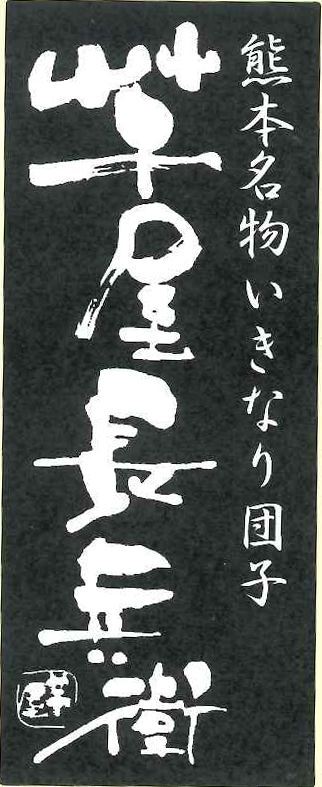 熊本名物いきなり団子
芋屋長兵衛
芋屋